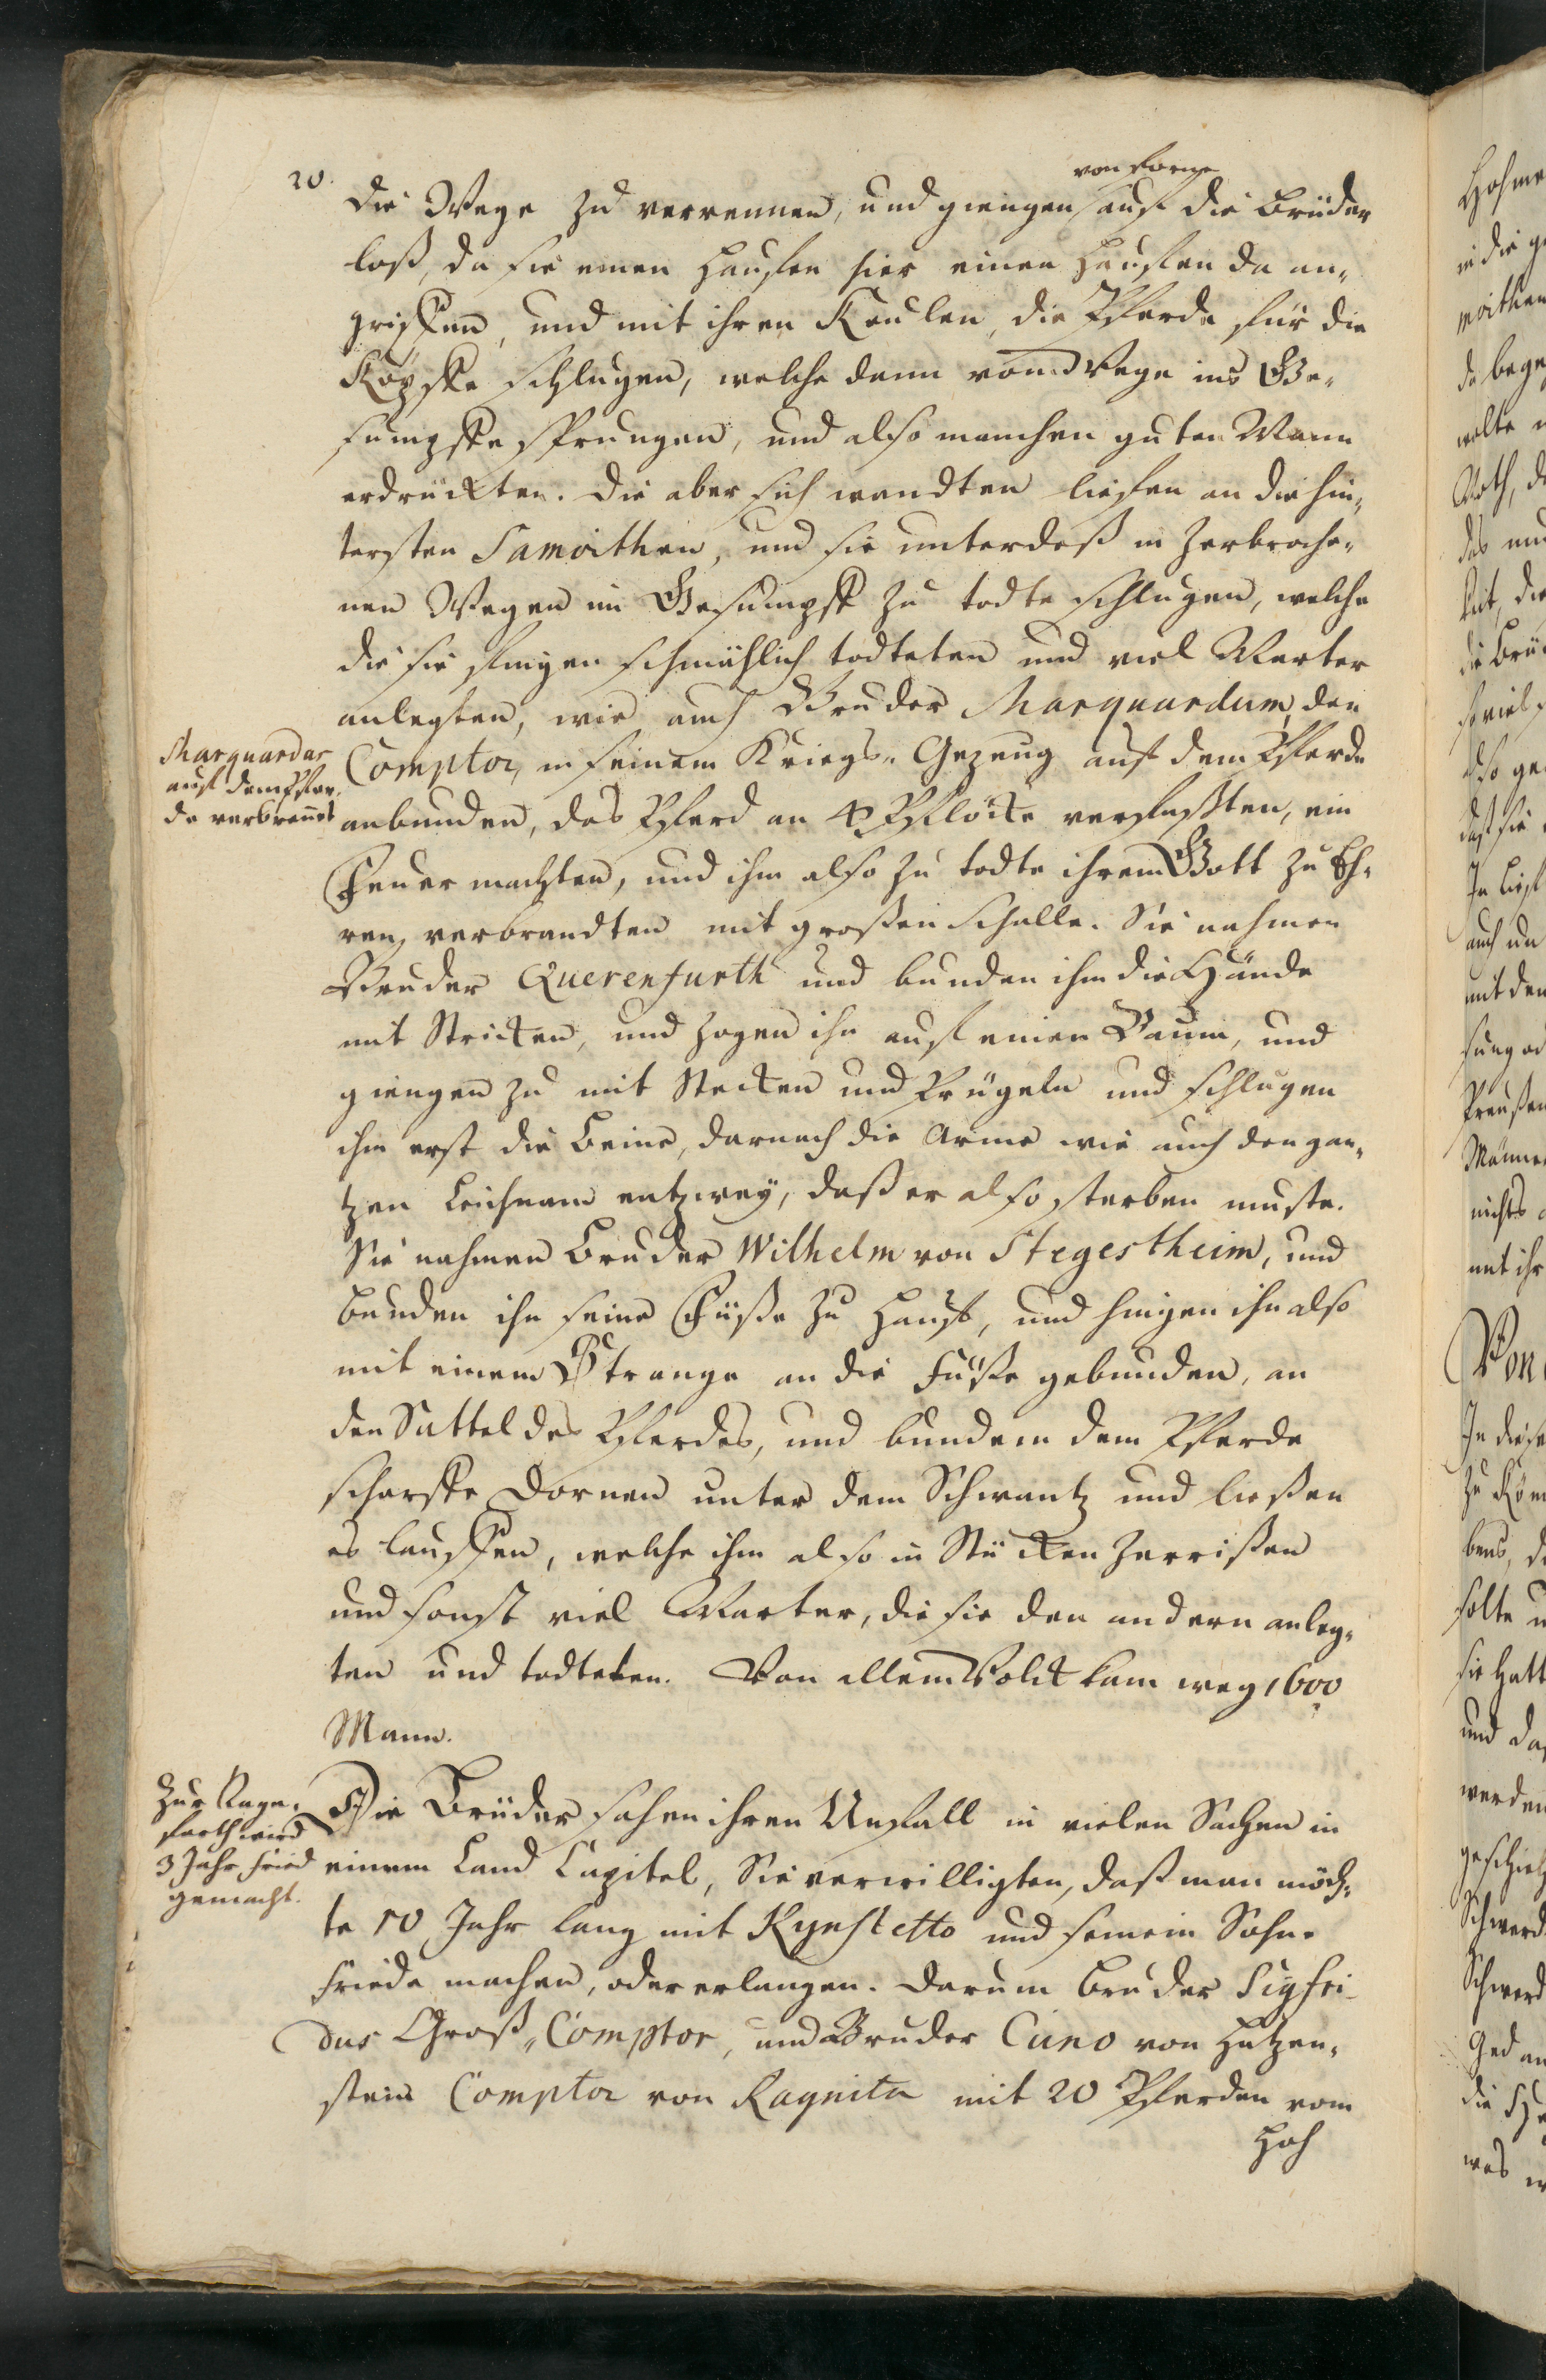 20.
von forne
die Wege zu verrennen, und giengen auf die Brüder
loß, da sie einen Hauffen hier einen Hauffen da an-
griffen, und mit ihren Keulen, die Pferde für die
Köpffe schlugen, welche dann vom Wege ins Ge-
sumpffe sprungen, und also manchen guten Mann
erdruckten. Die aber sich wandten lieffen an die hin-
tersten Samoithen, und sie unterdeß in zerbroche-
nen Wegen im Gesumpff zu todte schlugen, welche
die sie fingen schmählich todteten und viel Marter
anlegten, wie auch Bruder Marquardum, den
Marquardus
auf dem Pfer-
de verbrennt
Comptor, in seinem Kriegs-Gezeug auf dem Pferde
anbunden, das Pferd an 4 Pflöcke verfaßten, ein
Feuer machten, und ihm also zu todte ihrem Gott zu Eh-
ren, verbrandten mit großen Schalle. Sie nahmen
Bruder Querenfurth und bunden ihm die Hände
mit Stricken, und zogen ihn auf einen Baum, und
giengen zu mit Stecken und Prügeln und schlugen
ihm erst die Beine, darnach die Arme wie auch den gan-
tzen Leichnam entzwey, daß er also sterben muste.
Sie nahmen Bruder Wilhelm von Stegestheim, und
bunden ihn seine Füße zu Hauff, und hingen ihn also
mit einem Strange an die Füße gebunden, an
den Sattel des Pferdes, und bunden dem Pferde
scharffe Dornen unter dem Schwantz und ließen
es lauffen, welche ihm also in Stücken zerrißen
und sonst viel Marter, die sie den andern anleg-
ten und todteten. Von allem Volck kam weg 1600
Mann.
Zur Rage-
forth wird
3 Jahr Fried
gemacht.
Die Brüder sahen ihren Unfall in vielen Sachen in
einem Land Capitel, Sie verwilligten, daß man möch-
te 10 Jahr lang mit Kynstetto und seinem Sohne
Friede machen, oder erlangen. Darum Bruder Sigfri-
dus Groß-Comptor, und Bruder Cuno von Hatzen-
stein Comptor von Ragnita mit 20 Pferden vom
Hoh